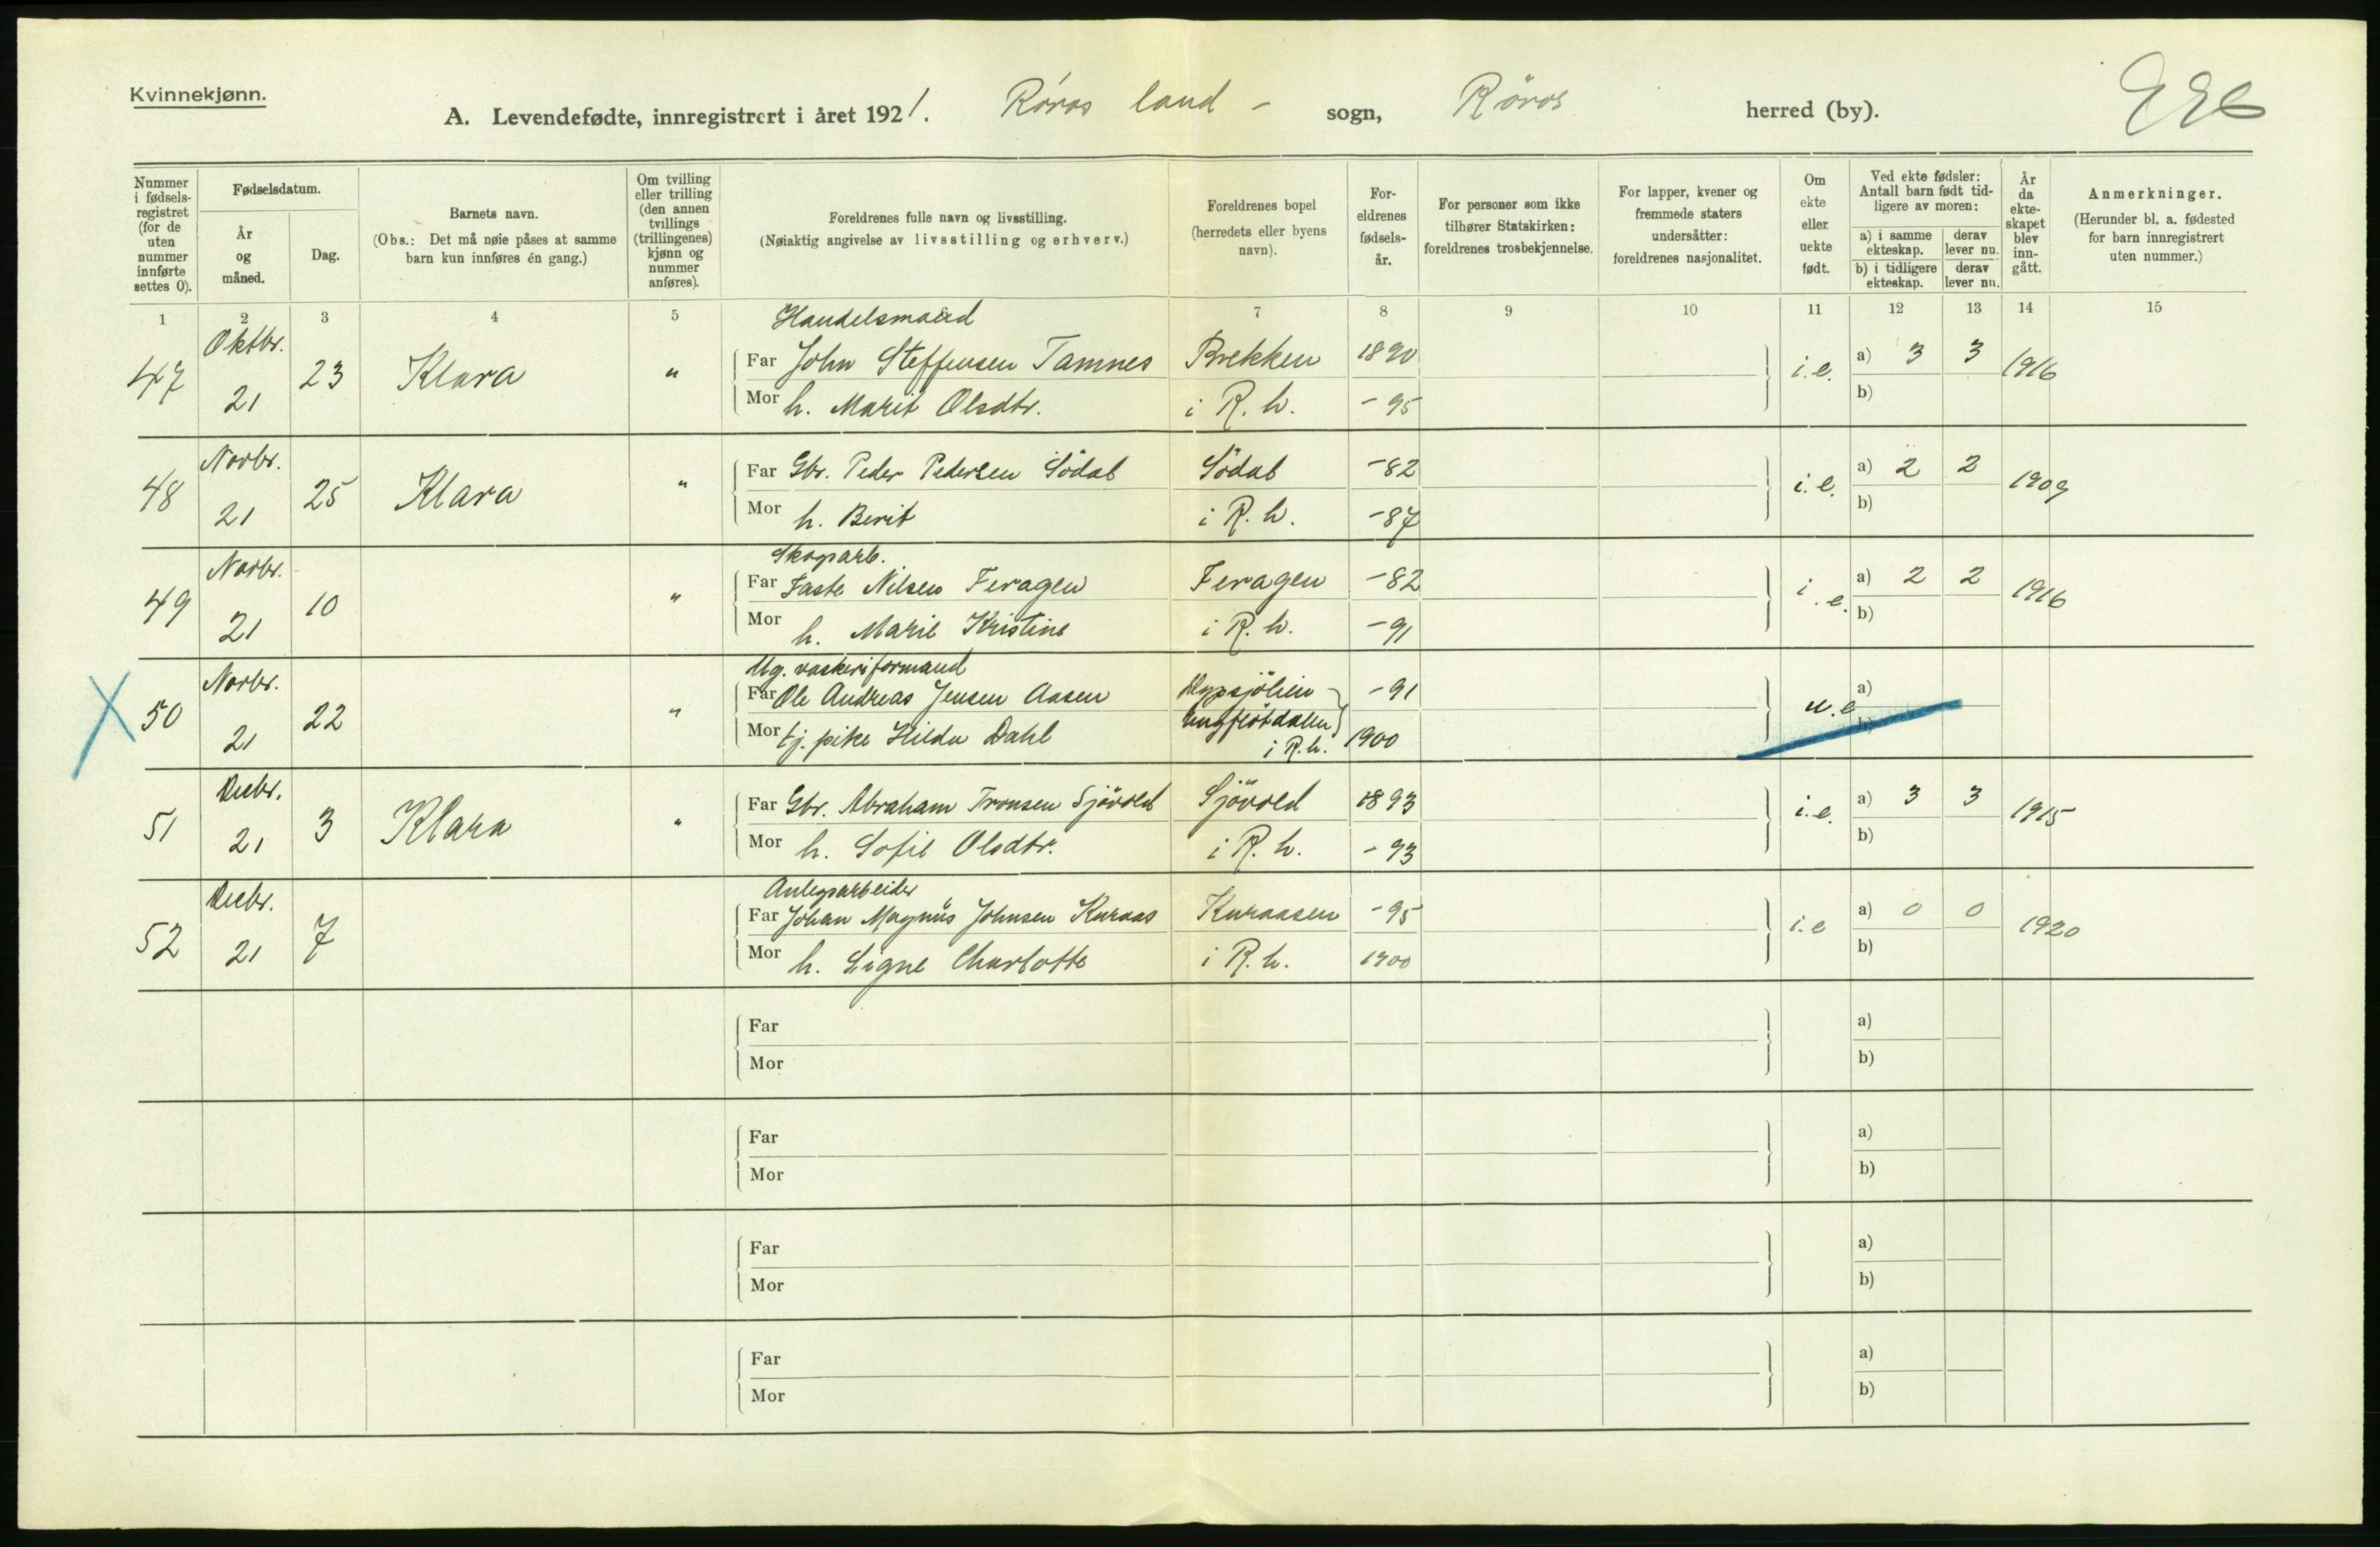 Kvinnekjønn.
A. Levendefødte, innregistrert i året 1921. Röros land - sogn, Röros herred (by).
Nummer i fødsels-registret (for de uten nummer innførte settes 0).
Fødselsdatum.
År og måned.
Dag.
Barnets navn.
(Obs.: Det må nøie påses at samme barn kun innføres én gang.)
Om tvilling eller trilling (den annen tvillings (trillingenes) kjønn og nummer anføres).
Foreldrenes fulle navn og livsstilling.
(Nøiaktig angivelse av livsstilling og erhverv.)
Foreldrenes bopel (herredets eller byens navn).
For-eldrenes fødsels-år.
For personer som ikke tilhører Statskirken: foreldrenes trosbekjennelse.
For lapper, kvener og fremmede staters undersåtter: foreldrenes nasjonalitet.
Om ekte eller uekte født.
Ved ekte fødsler: Antall barn født tid-ligere av moren:
a) i samme ekteskap. derav lever nu.
b) i tidligere ekteskap. derav lever nu.
År da ekte-skapet blev inn-gått.
Anmerkninger.
(Herunder bl. a. fødested for barn innregistrert uten nummer.)
1 2 3 4 5 7 8 9 10 11 12 13 14 15
Handelsmand
47 Oktbr. 21 23 Klara " Far John Steffensen Tamnes Brekken 1890 i.e. a) 3 3 1916
Mor h. Marit Olsdtr. i R. h. - 95 b)
48 Novbr. 21 25 Klara " Far Gbr. Peder Pedersen Södal Södal -82 i.e. a) 2 2 1909
Mor h. Berit i R. h. -87 b)
Skogarb.
49 Novbr. 21 10 " Far Faste Nilsen Feragen Feragen -82 i.e. a) 2 2 1916
Mor h. Marie Kristine i R. h. -91 b)
Ug. vaskeriformand
50 Novbr. 21 22 " Far Ole Andreas Jensen Aasen -91 u.e. a)
Mor tj. pike Hilda Dahl i R. h. 1900 b)
51 Decbr. 21 3 Klara " Far Gbr. Abraham Tronsen Sjövold Sjövold 1893 i.e. a) 3 3 1915
Mor h. Sofie Olsdtr. i R. h. - 93 b)
Anlegsarbeider
52 Decbr. 21 7 Far Johan Magnus Johnsen Kuraas Kuraasen -95 i.e a) 0 0 1920
Mor h. Signe Charlotte i R. h. 1900 b)
Far a)
Mor b)
Far a)
Mor b)
Far a)
Mor b)
Far a)
Mor b)